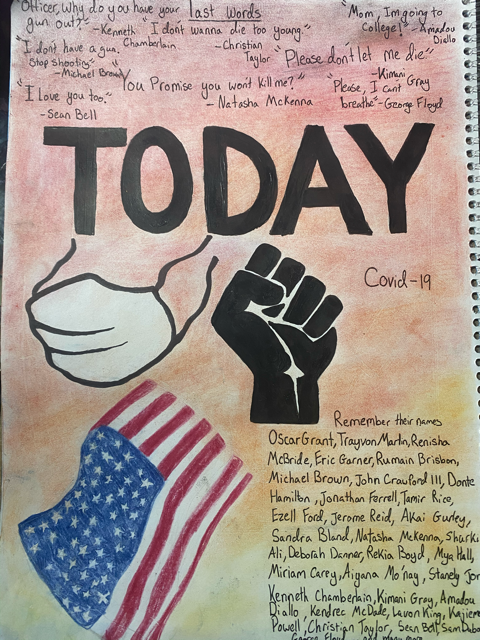 "Officer, Why do you have your last Words
gun out?" -Kenneth Chamberlain
"I don't wanna die too young." -Christian Taylor
"Mom, I'm going to College!" -Amadou Diallo
"I don't have a gun. Stop shooting" -Michael Brown
"Please don't let me die" -Kimani Gray
"You Promise you won't kill me?" -Natasha Mckenna
"I love you too." -Sean Bell
"Please, I can't breathe" -George Floyd
TODAY
Covid-19
Remember their names
Oscar Grant, Trayvon Martin, Renisha
McBride, Eric Garner, Rumain Brisbon,
Michael Brown, John Crawford III, Donte
Hamilton, Jonathan Ferrell, Tamir Rice,
Ezell Ford, Jerome Reid, Akai Gurley,
Sandra Bland, Natasha McKenna,
Ali, Deborah Danner, Rekia Boyd, Mya Hall,
Miriam Carey, Aiyana Mo'nay,
Kenneth Chamberlain, Kimani Gray, Amadou
Diallo, Kendrec McDade, Lavon King,
Powell, Christian Taylor, Sean Bell,
George Floyd and many more